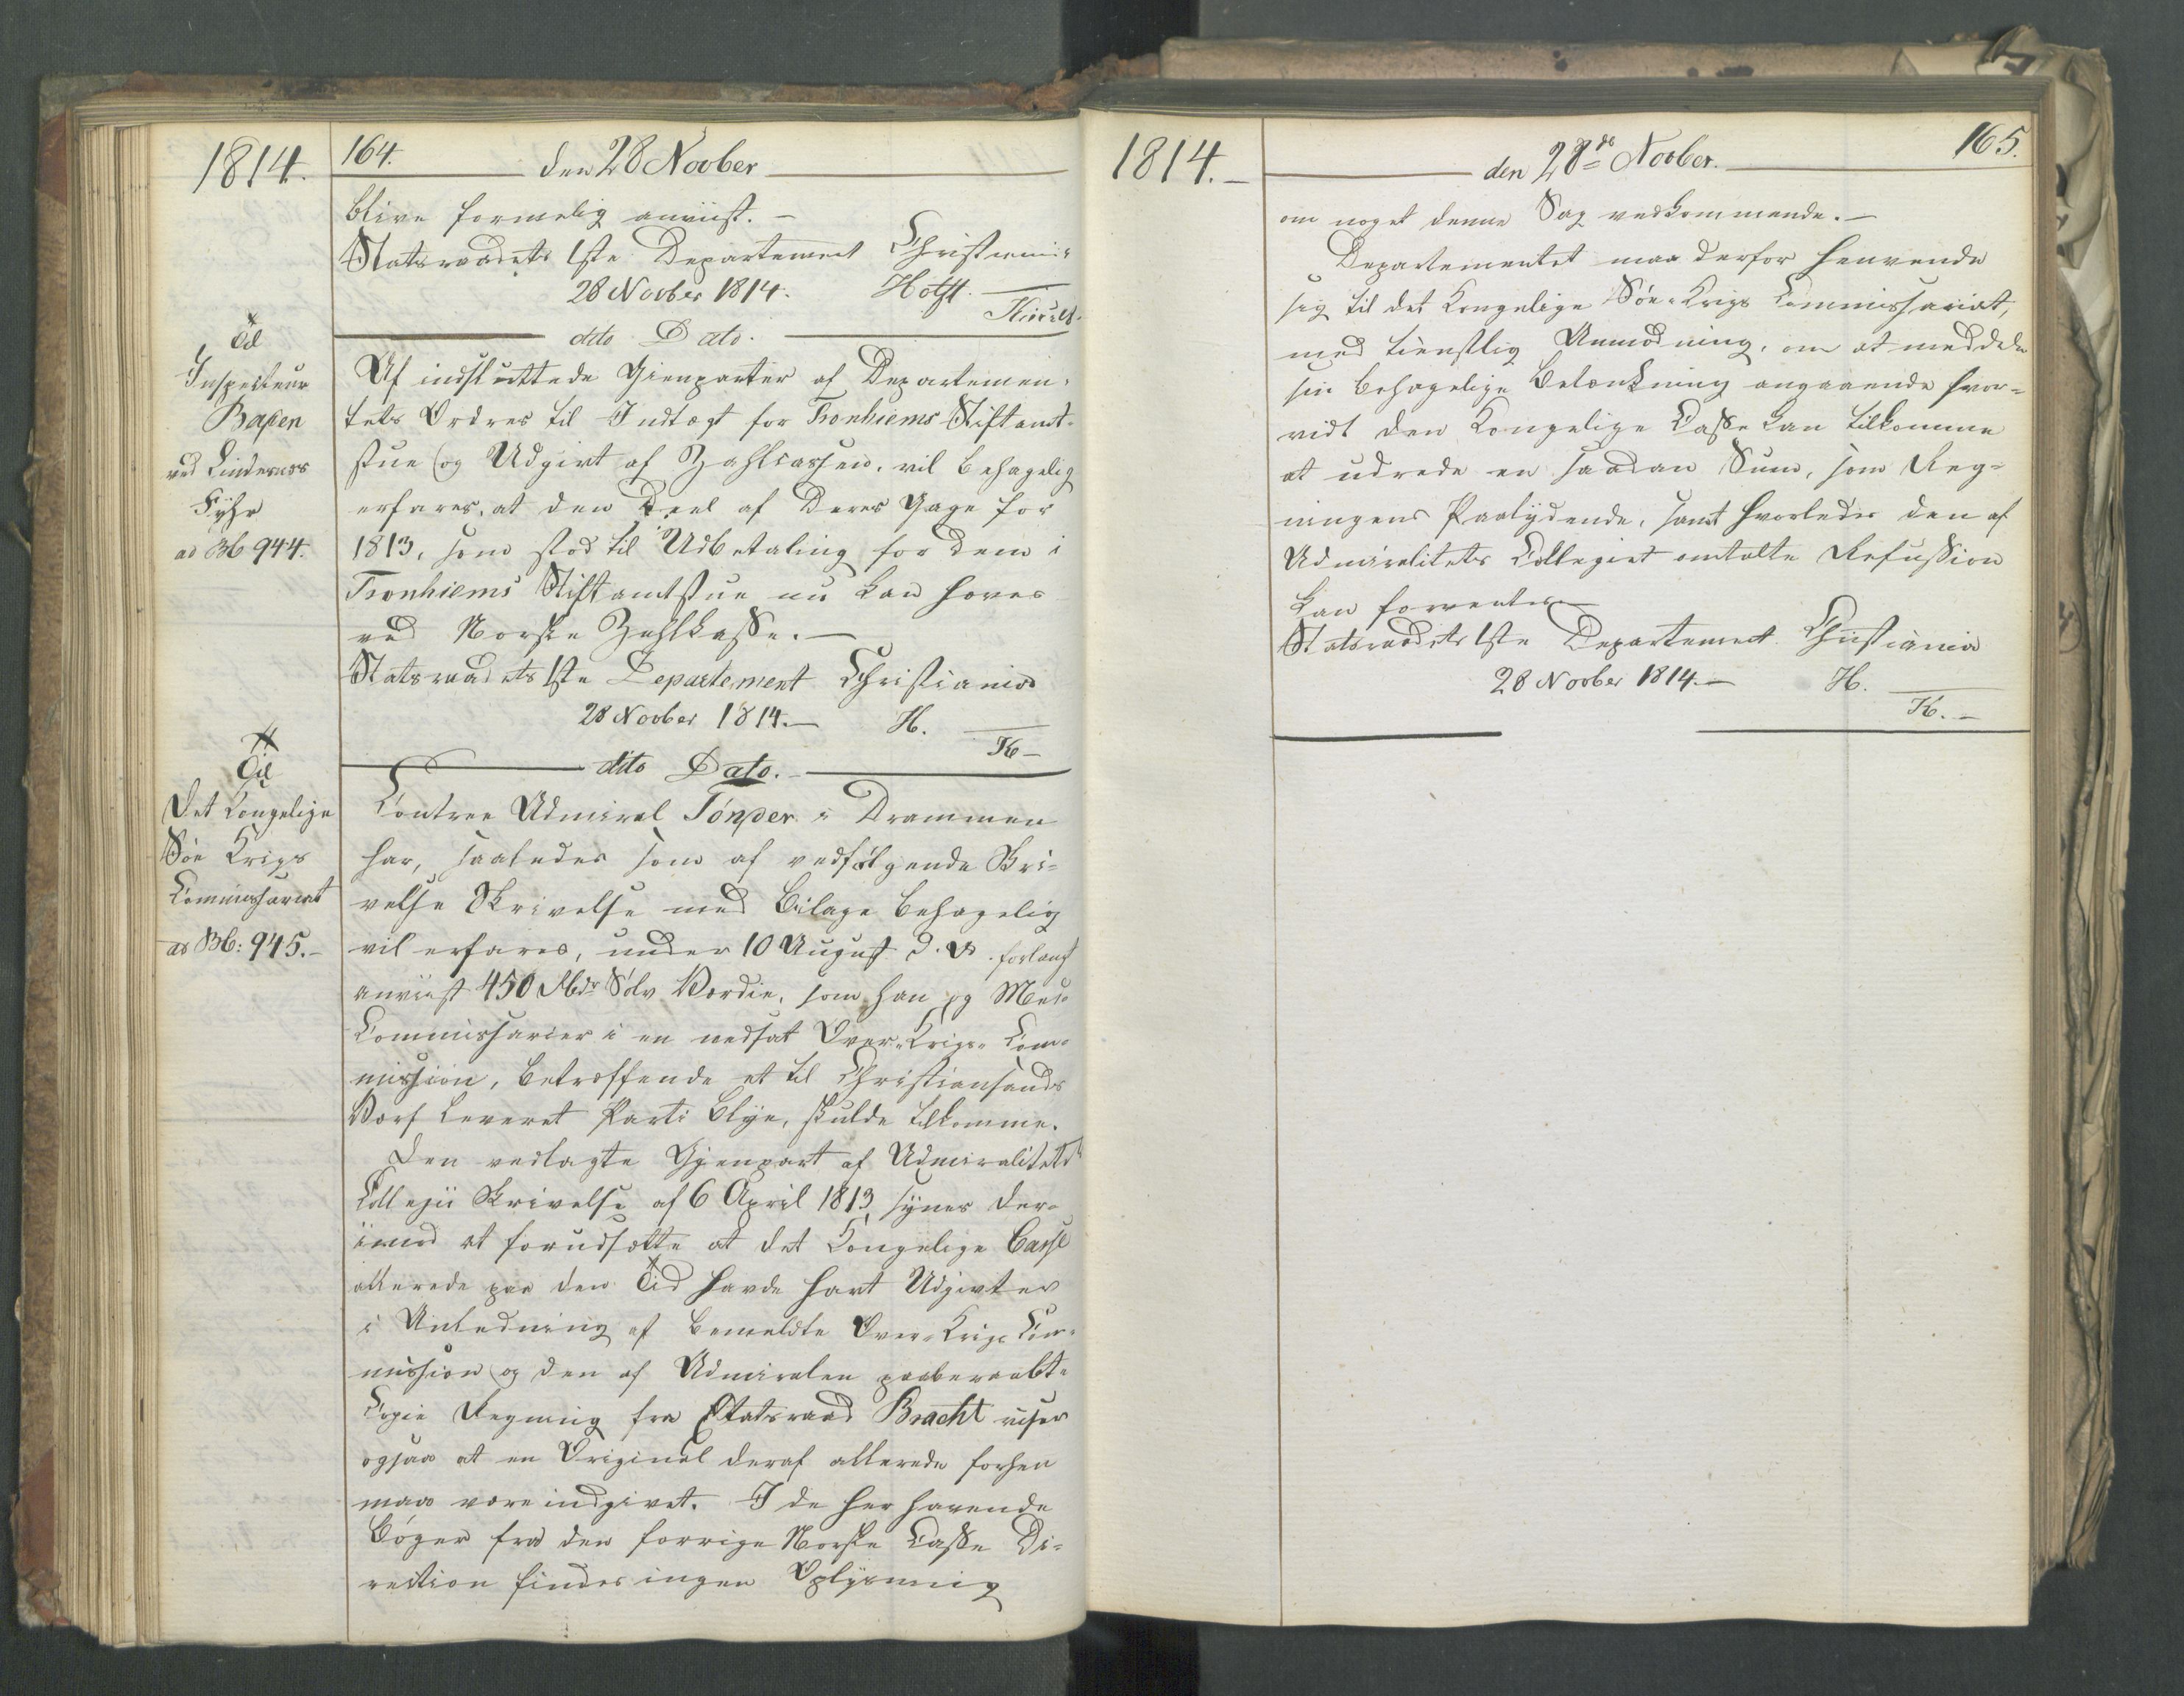 1814.
164.
den 28 Novber
blive formelig anviist. —
Statsraadets 1ste Departement Christiania
28 Novber 1814. Holst.
dito Dato.
Til
Inspecteur
ved Lindesnes
Fyhr
ad No 944.
Af indsluttede Gienparter af Departemen-
tets Ordres til Indtægt for Tronhiems Stiftamt-
stue og Udgivt af Zahlcassen, vil behagelig
erfares, at den Deel af Deres Gage for
1813, som stod til Udbetaling for dem i
Tronhiems Stiftamtstue nu kan hæves
ved Norske Zahlkasse. —
Statsraadets 1ste Departement Christiania
28 Novber 1814. — H.
K —
dito Dato. —
Til
Det Kongelige
Söe Krigs
Commissariat
ad No: 945. —
Contree Admiral Tönder i Drammen
har, saaledes som af vedfölgende Skri-
velse Skrivelse med Bilage behagelig
vil erfares, under 10 August d. A. forlangt
anviist 450 Rbdr Sölv Værdie, som han og Med-
Commissarier i en nedsat Over-Krigs-Com-
mission, betræffende et til Christiansands
Værf leveret Parti Blye, skulde tilkomme.
Den vedlagte Gjenpart af Admiralitets
Collegii Skrivelse af 6 April 1813 synes der-
imod at forudsætte at det Kongelige Casse
allerede paa den Tid havde havt Udgivter
i Anledning af bemeldte Over-Krigs Com-
mission og den af Admiralen paaberaabte
Copie Regning fra Etatsraad Bracht viser
ogsaa at en Original deraf allerede forhen
maa være indgivet. I de her havende
Böger fra den forrige Norske Casse Di-
rection findes ingen Oplysning
1814. —
den 28de Novber. —
165.
om noget denne Sag vedkommende. —
Departementet maa derfor henvende
sig til det Kongelige Söe-Krigs Commissariat,
med tienstlig Anmodning, om at meddele
sin behagelige Betænkning angaaende hvor-
vidt den Kongelige Casse kan tilkomme
at udrede en saadan Sum, som Reg-
ningens Paalydende, samt hvorledes den af
Admiralitets Collegiet omtalte Refussion
kan forventes —
Statsraadets 1ste Departement Christiania
28 Novber 1814. — H.
K. —